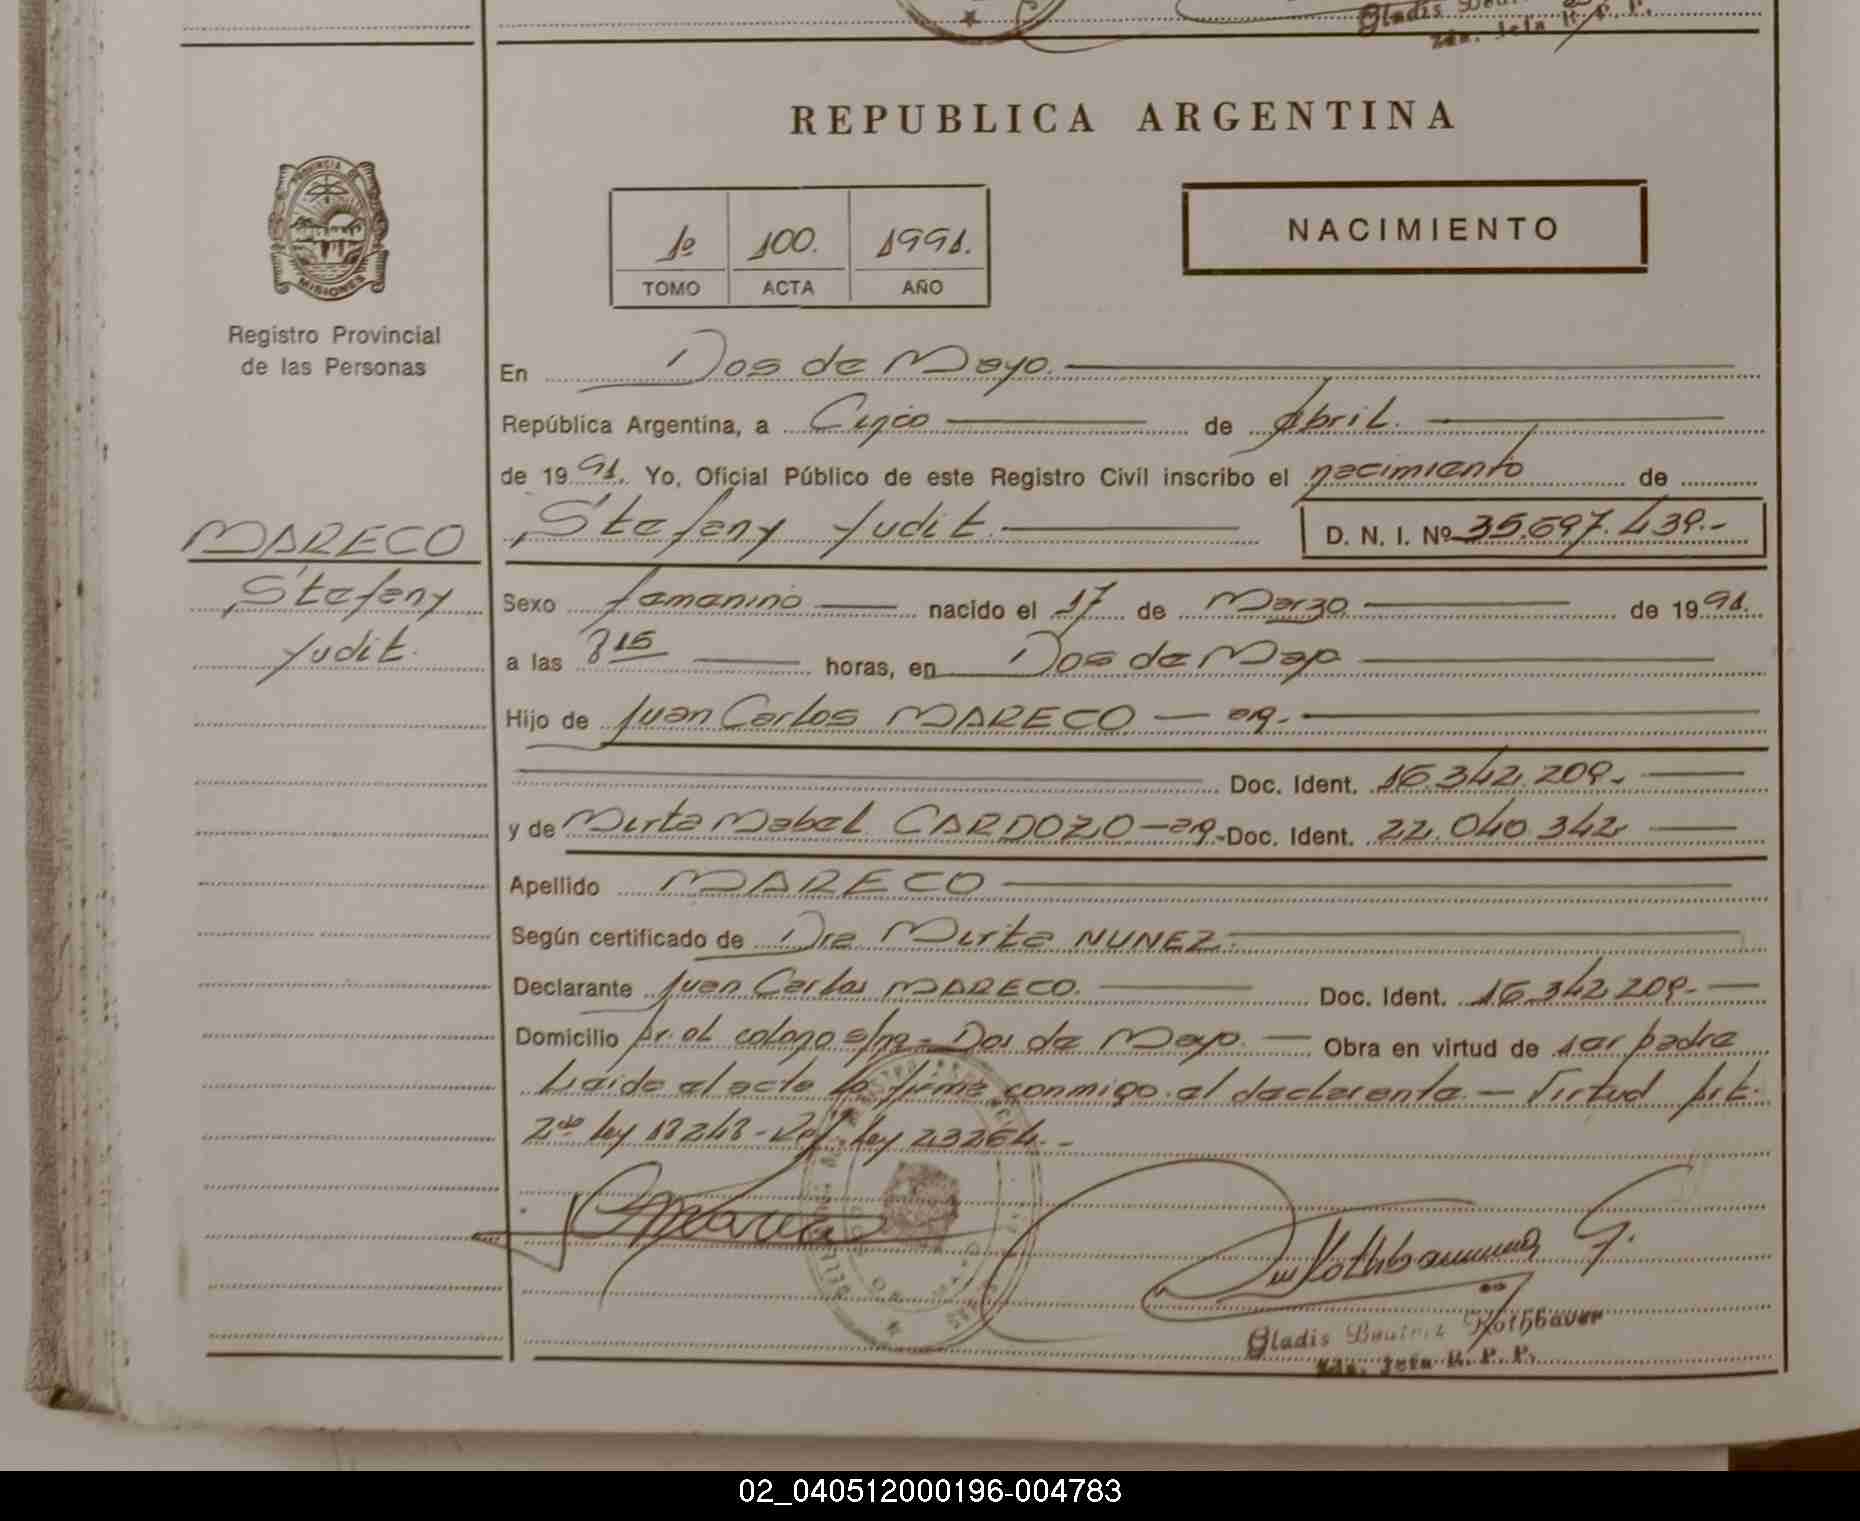 Gladis
2da. Jefa R. P. P.
REPUBLICA ARGENTINA
PROVINCIA DE
MISIONES
Registro Provincial
de las Personas
1º 100. 1991.
TOMO ACTA AÑO
NACIMIENTO
En Dos de Mayo.
República Argentina, a Cinco de Abril.
de 1991. Yo, Oficial Público de este Registro Civil inscribo el nacimiento de
MARECO
Stefany Yudit.
D. N. I. Nº 35.697.439.-
Stefany
Yudit.
Sexo femenino nacido el 17 de Marzo de 1991.
a las 8 15 horas, en Dos de Mayo
Hijo de Juan Carlos MARECO — arg.
Doc. Ident. 16.342.209.
y de Mirta Mabel CARDOZO — arg. Doc. Ident. 22.040.342
Apellido MARECO
Según certificado de Dra Mirta NUNEZ.
Declarante Juan Carlos MARECO. Doc. Ident. 16.342.209.
Domicilio Pr. el colono s/nº - Dos de Mayo. Obra en virtud de ser padre
Leido el acta la firma conmigo el declarante. — Virtud Art.
2do Ley 18248 - Ley 23264.-
Gladis Beatriz Rothbauer
2da. Jefa R. P. P.
02_040512000196-004783